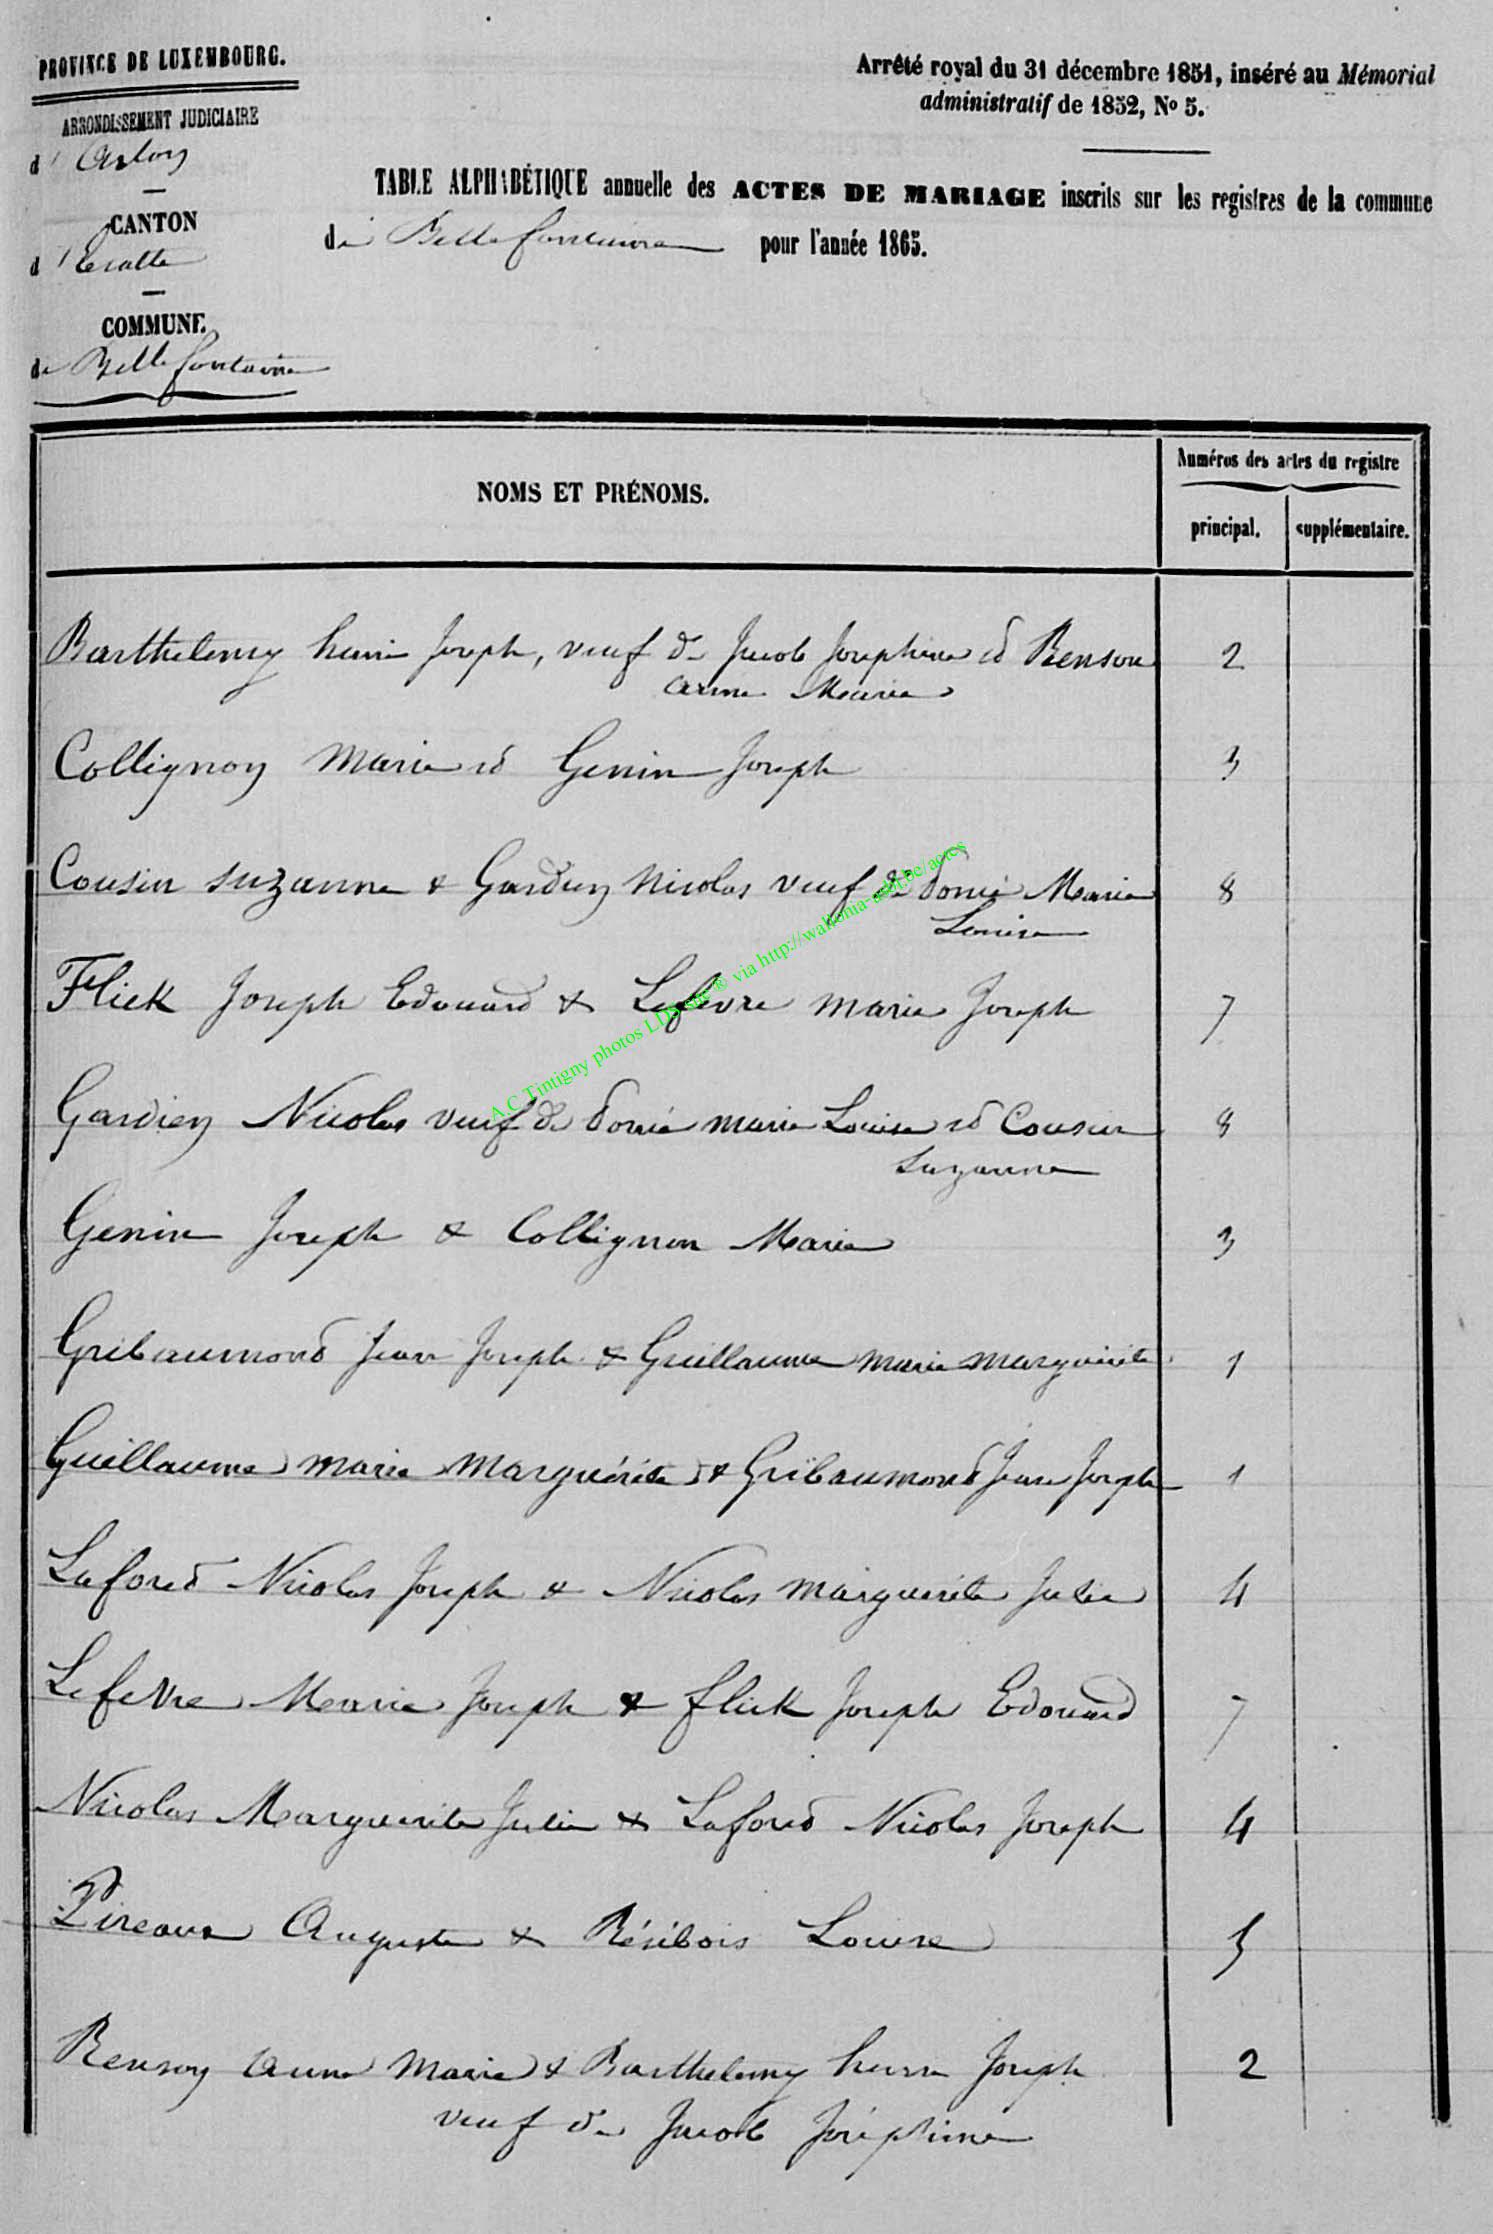 PROVINCE DE LUXEMBOURG.
ARRONDISSEMENT JUDICIAIRE
d' Arlon
CANTON
d' Etalle
COMMUNE.
de Bellefontaine
Arrêté royal du 31 décembre 1851, inséré au Mémorial
administratif de 1852, No 5.
TABLE ALPHABÉTIQUE annuelle des ACTES DE MARIAGE inscrits sur les registres de la commune
de Bellefontaine pour l'année 1865.
NOMS ET PRÉNOMS.
Numéros des actes du registre
principal. supplémentaire.
Barthelemy henri Joseph, veuf de Jacob Josephine et Renson 2
anne Marie
Collignon Marie et Genin Joseph 3
Cousin suzanne & Gardien Nicolas veuf de Marie 8
Louise
Flick Joseph Edouard & Lefevre marie Joseph 7
Gardien Nicolas veuf de marie Louise et Cousin 8
Suzanne
Genin Joseph & Collignon Marie 3
Gribaumond Jean Joseph & Guillaume marie marguerite 1
Guillaume marie Marguérite & Gribaumond Jean Joseph 1
Laford Nicolas Joseph & Nicolas marguerite Julie 4
Lefevre Marie Joseph & flick Joseph Edouard 7
Nicolas Marguerite Julie & Laford Nicolas Joseph 4
Pireaux Auguste & Résibois Louise 5
Renson Anne Marie & Barthelemy henri Joseph 2
veuf de Jacob Joséphine
A.C Tintigny photos LDS via http://wallonia-asbl.be/actes